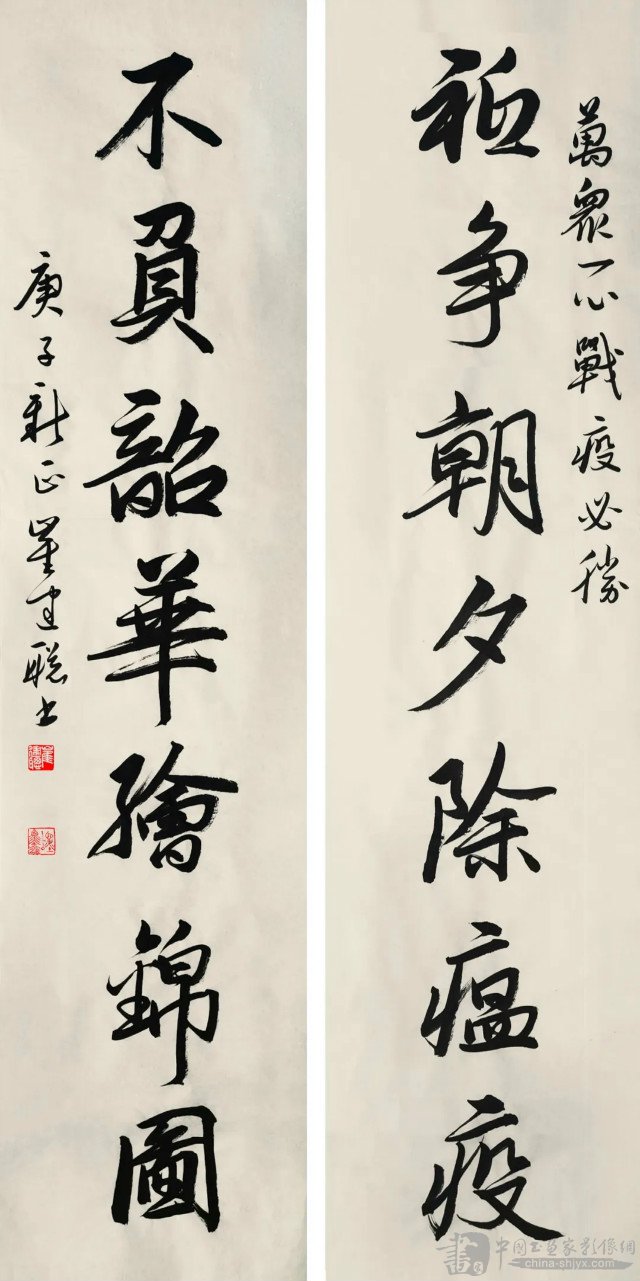 萬衆一心戰疫必勝
祗争朝夕除瘟疫
不負韶華繪錦圖
庚子新正崔建聪书
書
中国书画家影像網
china-shjyx.com